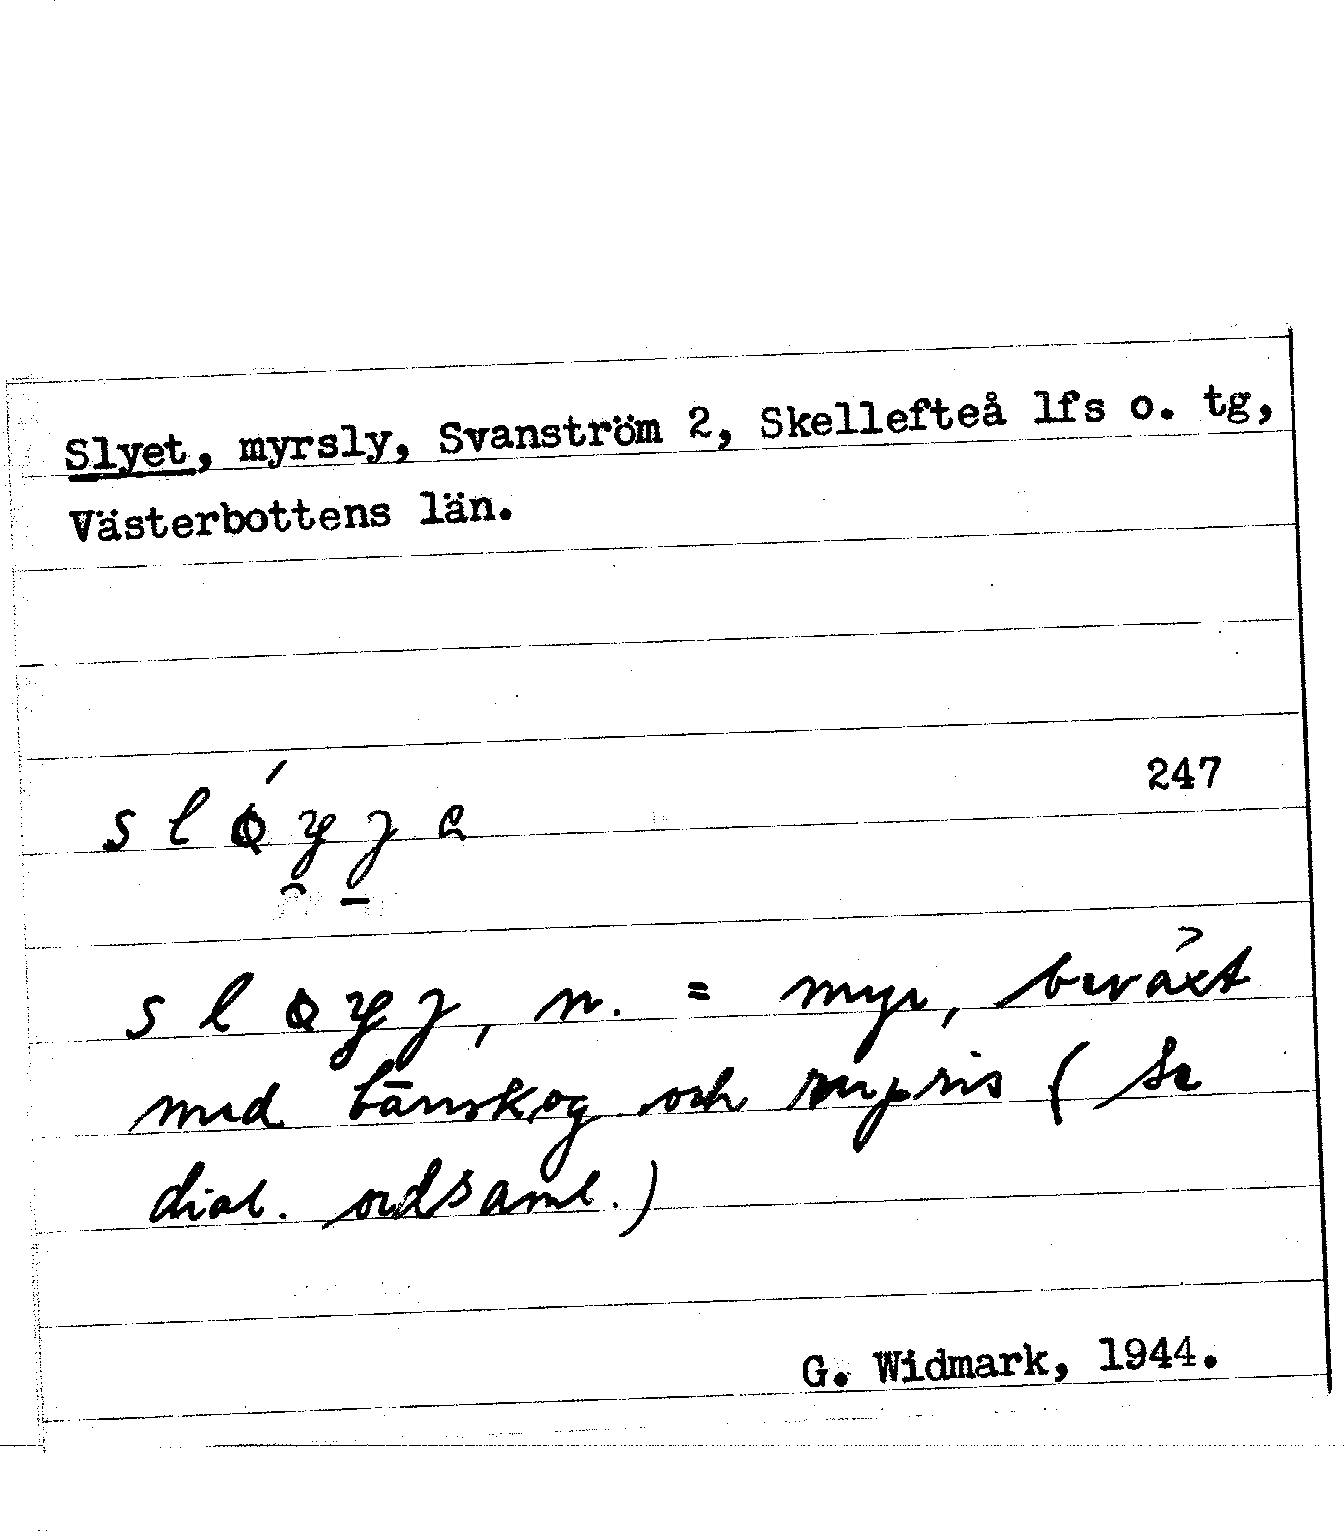 Slyet, myrsly, Svanström 2, Skellefteå lfs o. tg,
Västerbottens län.
247
sløyjе
sløyj, n. = myr, beväxt
med tänskog och myrris (Se
dial. ordsaml.)
G. Widmark, 1944.